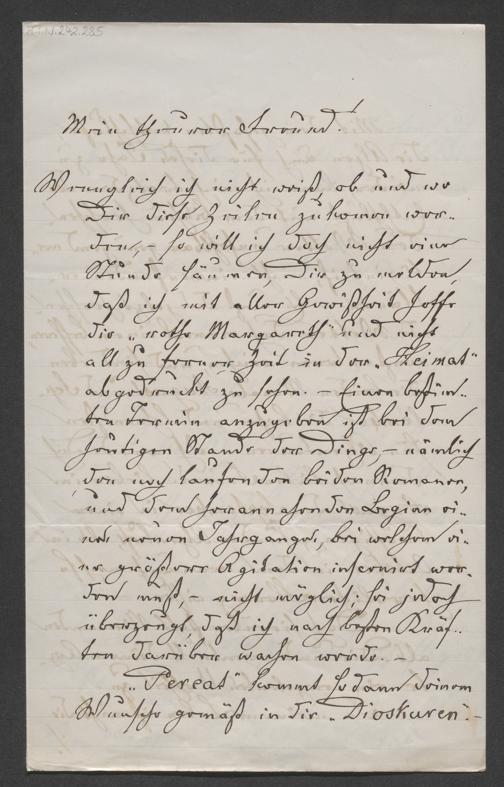 Mein theurer Freund!
Wenngleich ich nicht weiß, ob und wo
Dir diese Zeilen zukomen wer-
den, – so will ich doch nicht eine
Stunde säumen, Dir zu melden,
daß ich mit aller Gewißheit hoffe
die „rothe Margareth" und nicht
all zu ferner Zeit in der „Heimat"
abgedruckt zu sehen. – Einen bestim-
ten Termin anzugeben ist bei dem
heutigen Stande der Dinge, – nämlich
den noch laufenden beiden Romanen,
und dem herannahenden Beginn ei-
nes neuen Jahrganges, bei welchem ei-
ne größere Agitation inscenirt wer-
den muß, – nicht möglich; sei jedoch
überzeugt, daß ich nach besten Kräf-
ten darüber wachen werde. –
„Pereat" kommt sodann deinem
Wunsche gemäß in die „Dioskuren". –